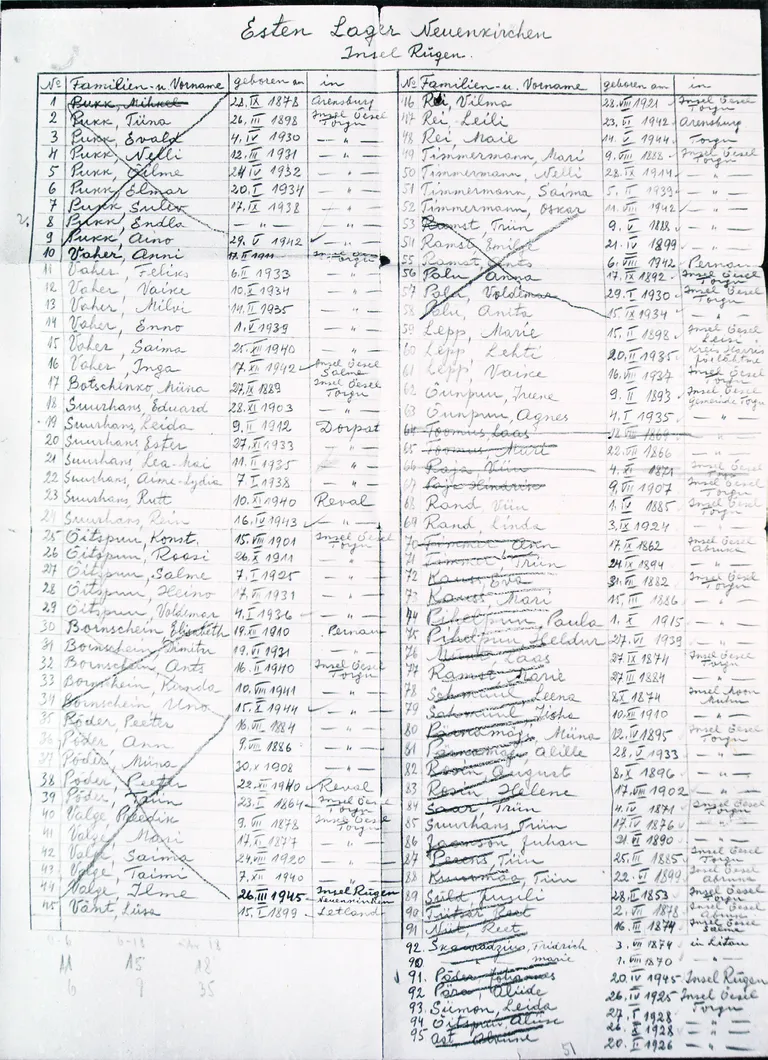 Esten Lager Neuenkirchen
Insel Rügen.
№ Familien- u. Vorname geboren an in
1 Pukk, Mihkel 28. IX 1878 Arensburg
2 Pukk, Tiina 26. III 1898 Insel Oesel Torgu
3 Pukk, Evald 4. IV 1930 — " —
4 Pukk, Nelli 12. IX 1931 — " —
5 Pukk, 24. IV 1932 — " —
6 Pukk, Elmar 20. I 1934 — " —
7 Pukk, Sulev 17. IX 1938 — " —
8 Pukk, Endla — " —
9 Pukk, Aino 29. V 1942 — " —
10 Vaher, Anni Torgu
11 Vaher, Feliks 6. II 1933 — " —
12 Vaher, Vaike 10. I 1934 — " —
13 Vaher, Milvi 14. II 1935 — " —
14 Vaher, Enno 1. V 1939 — " —
15 Vaher, Saima 25. VII 1940 — " —
16 Vaher, Inga 17. XII 1942 Insel Oesel Salme
17 Botschinko, Miina 27. IX 1889 Insel Oesel Torgu
18 Suurhans, Eduard 28. XI 1903 — " —
19 Suurhans, Leida 9. II 1912 Dorpat
20 Suurhans, Ester 27. XI 1933 — " —
21 Suurhans, Lea-Mai 11. II 1935 — " —
22 Suurhans, Aime-Lydia 7. I 1938 — " —
23 Suurhans, Rutt 10. XI 1940 Reval
24 Suurhans, Rein 16. IV 1943 — " —
25 Oitspuu, Konst. 15. VIII 1901 Insel Oesel Torgu
26 Oitspuu, Roosi 26. X 1911 — " —
27 Oitspuu, Salme 7. I 1925 — " —
28 Oitspuu, Heino 17. VII 1931 — " —
29 Oitspuu, Voldemar 4. I 1936 — " —
30 Bornschein, Elisabeth 19. VI 1910 Pernau
31 Bornschein, Dimitri 19. VI 1931 — " —
32 Bornschein, Ants 16. II 1940 Insel Oesel Torgu
33 Bornschein, 10. VIII 1941 — " —
34 Bornschein, Uno 15. X 1944 — " —
35 Põder, Peeter 16. VII 1884 — " —
36 Põder, Ann 9. VII 1886 — " —
37 Põder, Miina 30. X 1908 — " —
38 Põder, Peeter 22. XII 1940 Reval
39 Põder, Triin 23. I 1864 Insel Oesel Torgu
40 Valge, Peedik 9. VII 1878 Insel Oesel Torgu
41 Valge, Mari 17. XI 1877 — " —
42 Valge, Saima 24. VII 1920 — " —
43 Valge, Taimi 7. XII 1940 — " —
44 Valge, Ilme 26. III 1945 Insel Rügen Neuenkirchen
45 Vant, Liisa 15. I 1899 Letland
0-6 6-18
11 15 18
6 9 35
№ Familien- u. Vorname geboren an in
46 Rei, Vilma 28. VIII 1921 Insel Oesel Torgu
47 Rei, Leili 23. VI 1942 Arensburg
48 Rei, Maie 14. V 1944 Torgu
49 Timmermann, Mari 9. VIII 1888 Insel Oesel Torgu
50 Timmermann, Nelli 28. IX 1914 — " —
51 Timmermann, Saima 5. II 1939 — " —
52 Timmermann, Oskar 11. VIII 1942 — " —
53 Ramst, Triin 9. V 1818 — " —
54 Ramst, Emilie 21. IV 1899 — " —
55 Ramst, Ants 6. VIII 1942 Pernau
56 Palu, Anna 17. IX 1892 Insel Oesel Torgu
57 Palu, Voldemar 29. I 1930 Insel Oesel Torgu
58 Palu, Anita 15. IX 1934 — " —
59 Lepp, Marie 15. II 1898 Insel Oesel Leisi
60 Lepp, Lehti 20. II 1935 Kreis Harris
61 Lepp, Vaike 16. VIII 1937 Insel Oesel Torgu
62 Õunpuu, Irene 9. II 1893 Insel Oesel Gemeinde Torgu
63 Õunpuu, Agnes 4. I 1935 — " —
64 Toomus, Laas 12. VIII 1869 — " —
65 Toomus, Mari 22. VII 1866 — " —
66 Raja, Viiu 4. XI 1871 Insel Oesel
67 Raja, Hindrik 9. VII 1907 Insel Oesel Torgu
68 Rand, Viiu 1. IV 1885 Insel Oesel Torgu
69 Rand, Linda 3. IX 1924
70 Timmer, Ann 17. IX 1862 Insel Oesel Abruka
71 Timmer, Triin 24. IX 1894 — " —
72 Kauss, Eva 31. III 1882 Insel Oesel Torgu
73 Kauss, Mari 15. III 1886 — " —
74 Pihelpuu, Paula 1. X 1915 — " —
75 Pihelpuu, Heldur 27. VI 1939 — " —
76 Laas 27. IX 1874 Insel Oesel Torgu
77 Marie 27. III 1884 — " —
78 Schmuul, Leena 8. X 1874 Insel Moon Muhu
79 Schmuul, Tisha 10. XI 1910 — " —
80 Miina 12. IV 1895 Insel Oesel Torgu
81 Alille 28. V 1933 — " —
82 Rosin, August 8. X 1896 — " —
83 Rosin, Helene 17. VIII 1902 — " —
84 Saar, Triin 4. IV 1871 Insel Oesel Torgu
85 Suurhans Triin 17. IV 1876 — " —
86 Jaanson, Juhan 21. VI 1890 — " —
87 Triin 25. III 1885 Insel Oesel Torgu
88 Triin 22. VI 1899 Insel Oesel Abruka
89 Suld, Juuli 28. II 1853 Insel Oesel Torgu
90 Reet 2. VII 1878 Insel Oesel Abruka
91 Nüt, Reet 16. III 1874 Insel Oesel Salme
92. Skauradzius, Fridrich 3. VII 1874 in Litau
90 — " — Marie 1. VIII 1870 — " —
91. Põder, Johannes 20. IV 1945 Insel Rügen
92 Pära, Aliide 26. IV 1925 Insel Oesel Torgu
93. Siimon, Leida 27. I 1928 — " —
94 Oitspuu, Aliise 26. X 1928 — " —
95 20. I 1926 — " —
51